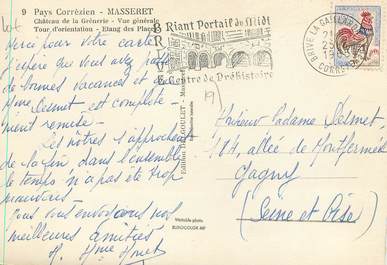 lot
9 Pays Corrézien - MASSERET
Château de la Grènerie - Vue générale
Tour d'orientation - Etang des Places
BRIVE
Riant Portail du Midi
& Centre de Préhistoire
BRIVE LA GAILLARDE
CORRÈZE
19
Merci pour votre carte
J'espère que vous avez passé
de bonnes vacances et que
Mme Delmet est complète-
ment remise -
Les nôtres s'approchent
de la fin dans l'ensemble
le temps n'a pas été trop
mauvais.
Nous vous envoyons nos
meilleures amitiés
M. Mme
Monsieur Madame Delmet
184, allée de Montfermeil
Gagny
(Seine et Oise)
Véritable photo